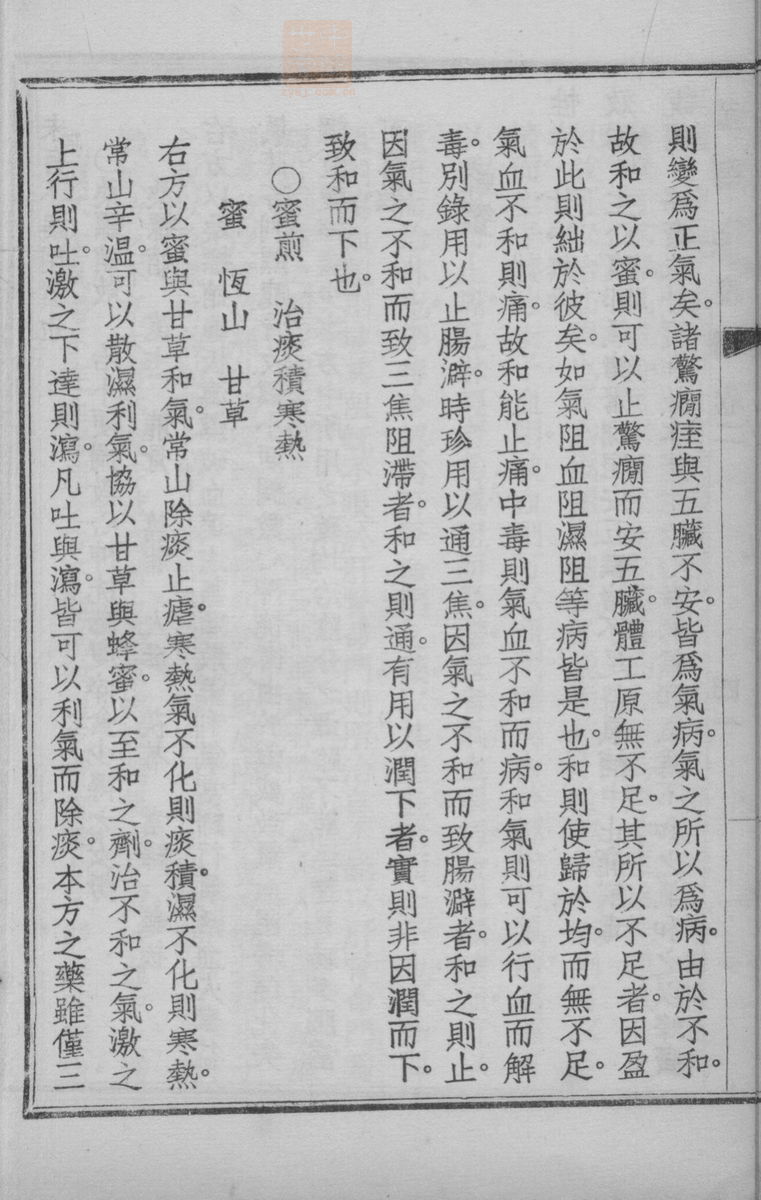 則變爲正氣矣。諸驚癇痓與五臟不安。皆爲氣病。氣之所以爲病。由於不和。
故和之以蜜。則可以止驚癇而安五臟。體工原無不足。其所以不足者。因盈
於此則絀於彼矣。如氣阻血阻濕阻等病皆是也。和則使歸於均。而無不足。
氣血不和則痛。故和能止痛。中毒則氣血不和而病。和氣則可以行血而解
毒。別錄用以止腸澼。時珍用以通三焦。因氣之不和而致腸澼者。和之則止。
因氣之不和而致三焦阻滯者。和之則通。有用以潤下者。實則非因潤而下。
致和而下也。
○蜜煎　治痰積寒熱
蜜　恆山　甘草
右方以蜜與甘草和氣。常山除痰止瘧。寒熱氣不化則痰積。濕不化則寒熱。
常山辛温。可以散濕利氣。協以甘草與蜂蜜。以至和之劑。治不和之氣。激之
上行則吐。激之下達則瀉。凡吐與瀉。皆可以利氣而除痰。本方之藥雖僅三